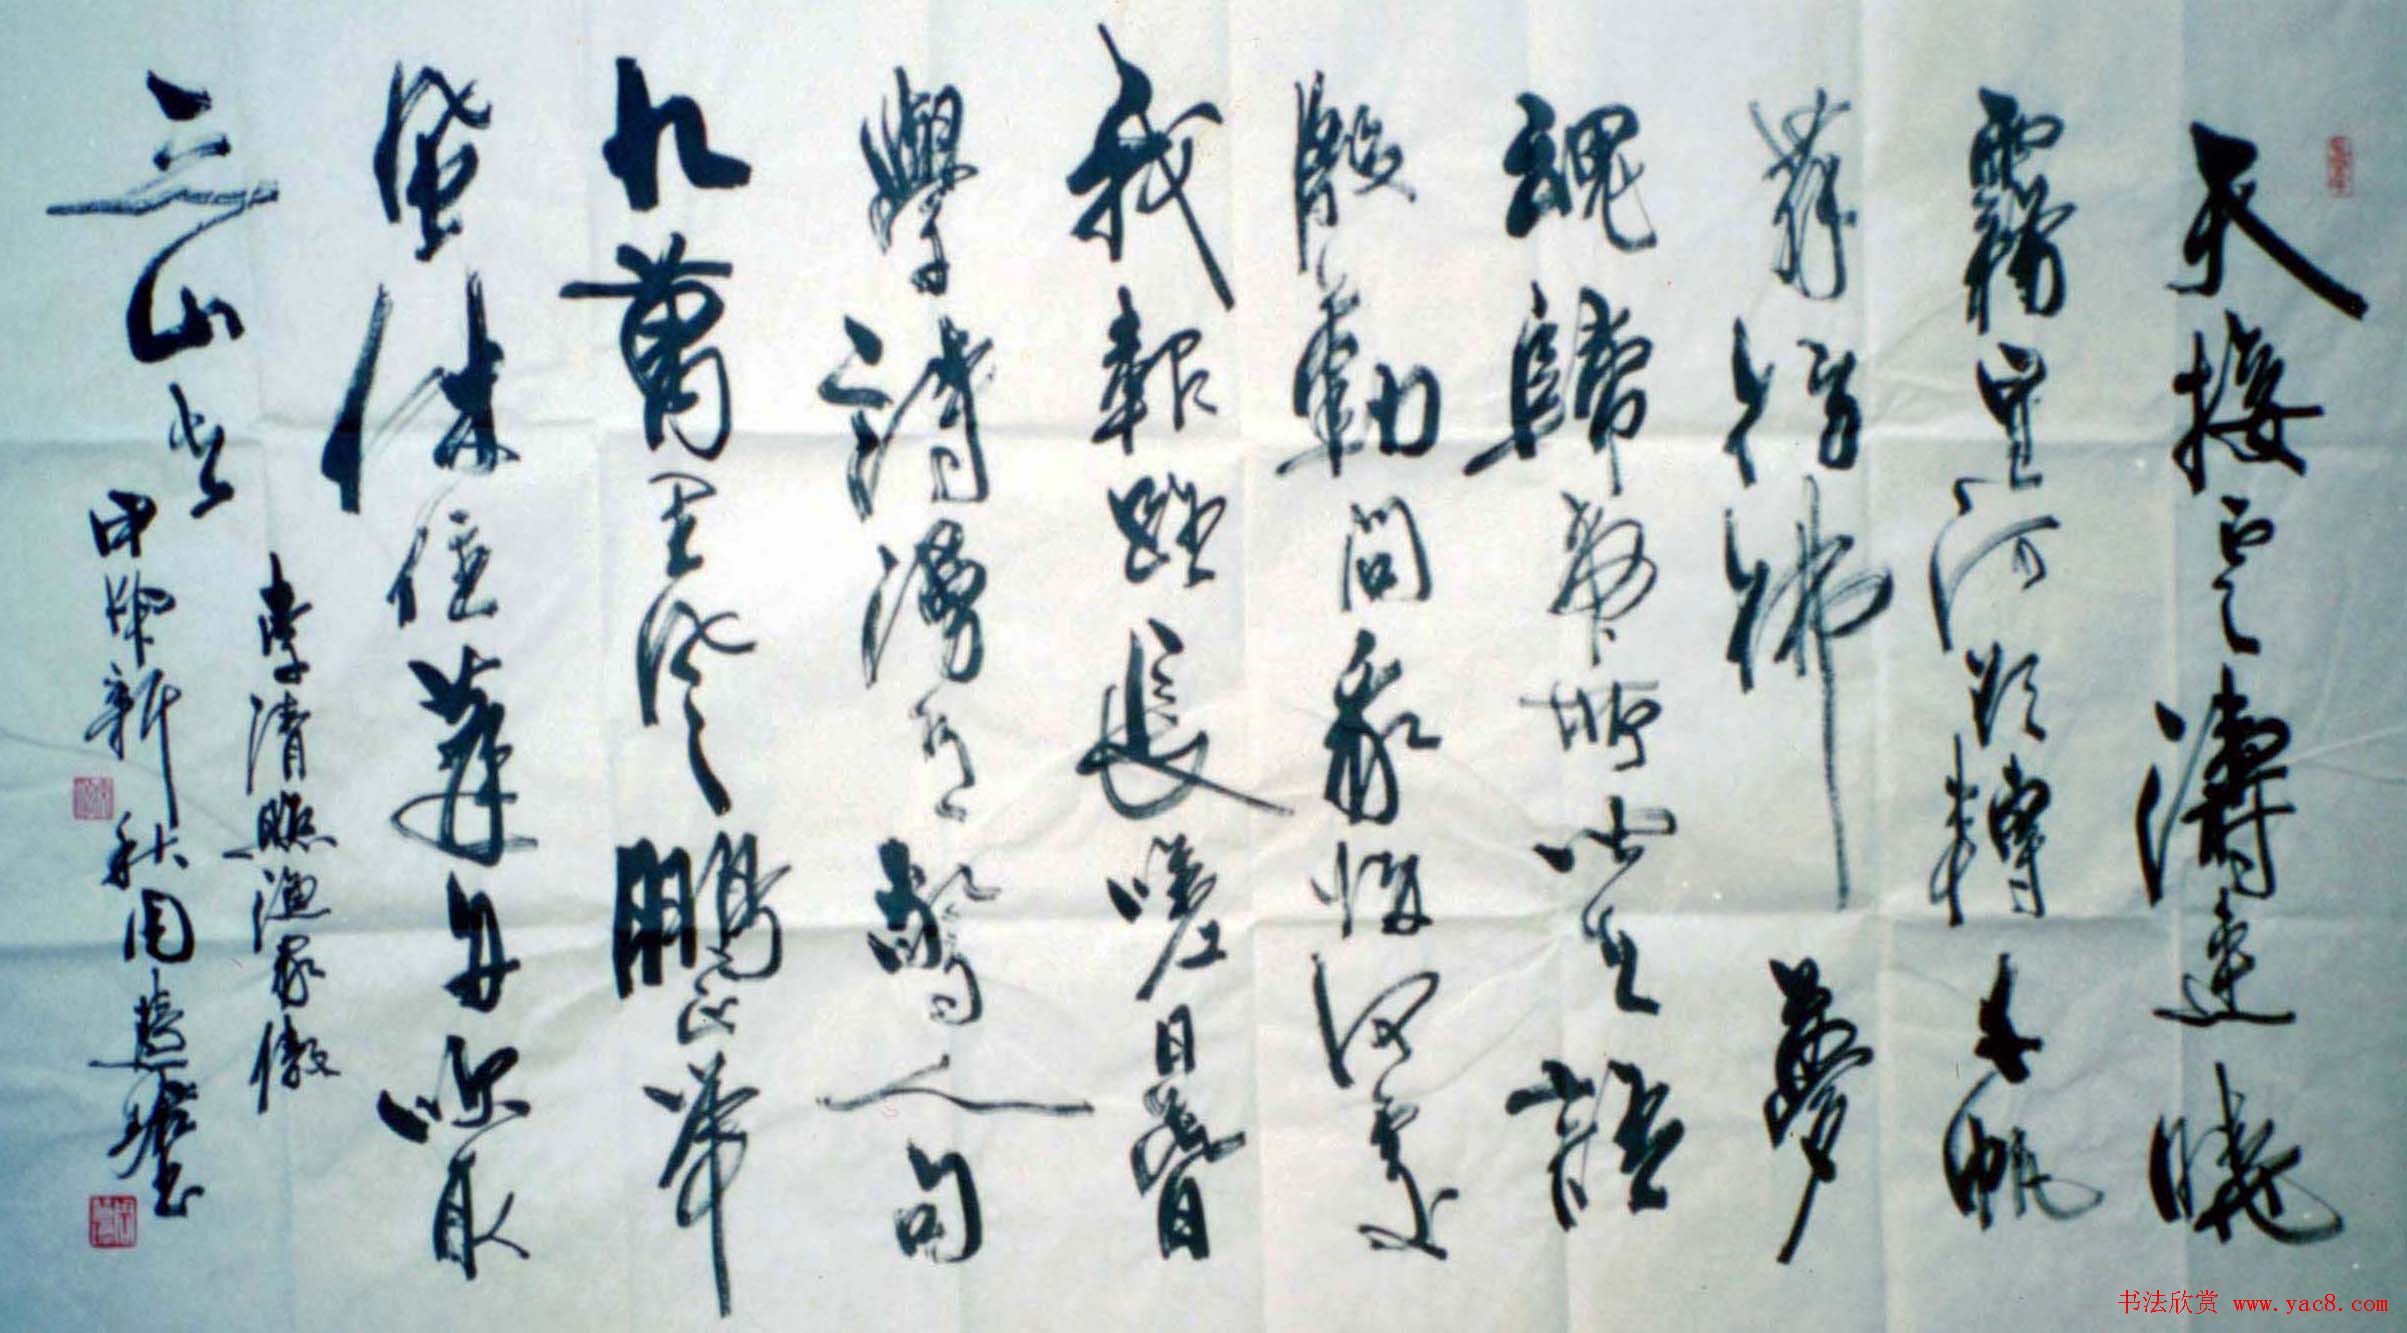 天接雲濤連曉
霧星河欲轉千帆
舞彷彿夢
魂歸帝所聞天語
殷勤問我歸何處
我報路長嗟日暮
學詩漫有驚人句
九萬里風鵬正舉
風休住蓬舟吹取
三山去
李清照漁家傲
甲 新秋周
书法欣赏 www.yac8.com